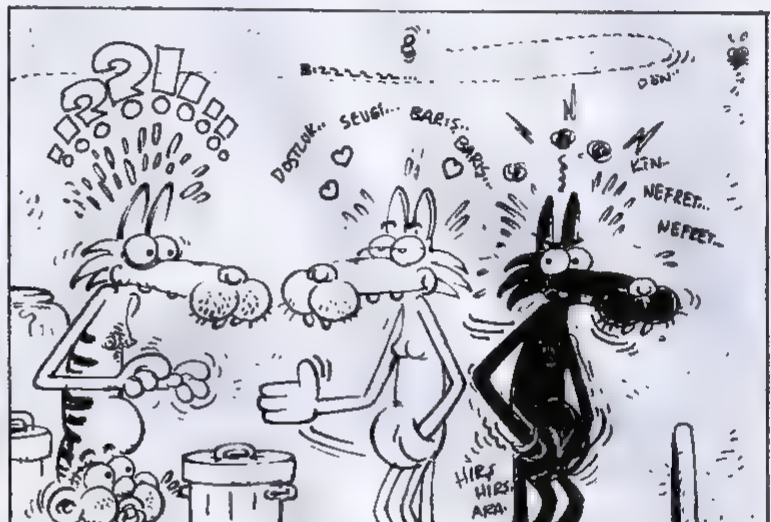 !??!!..
BIZZZZZZZ...
DÖN..
DOSTLUK..
SEVGİ...
BARIŞ..
BARIŞ..
KİN..
NEFRET...
NEFRET...
HIRS
HIRS
ARA.